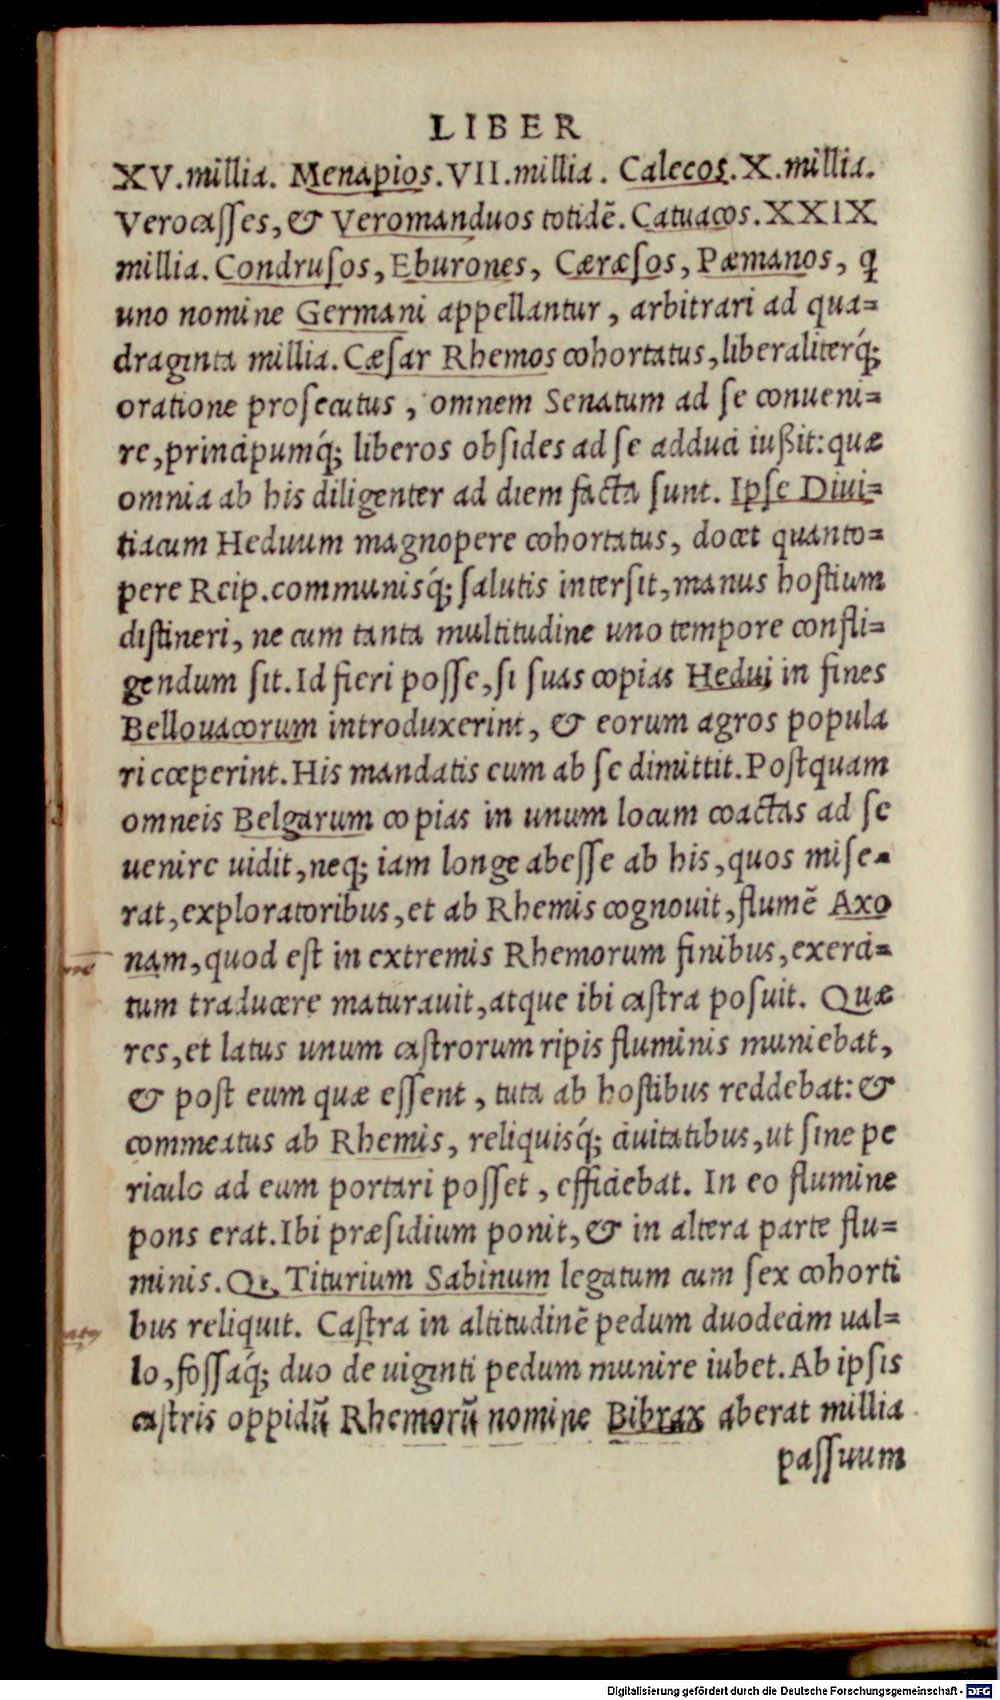 LIBER
XV.millia. Menapios.VII.millia. Calecos.X.millia.
Verocaſſes, & Veromanduos totidē. Catuacos.XXIX
millia. Condruſos, Eburones, Cæræſos, Pæmanos, ꝗ
uno nomine Germani appellantur, arbitrari ad qua=
draginta millia. Cæſar Rhemos cohortatus, liberaliterq́;
oratione proſecutus, omnem Senatum ad ſe conueni=
re, principumq́; liberos obſides ad ſe adduci iußit: quæ
omnia ab his diligenter ad diem facta ſunt. Ipſe Diui=
tiacum Heduum magnopere cohortatus, docet quanto=
pere Reip.communisq́; ſalutis interſit, manus hoſtium
diſtineri, ne cum tanta multitudine uno tempore confli=
gendum ſit. Id fieri poſſe, ſi ſuas copias Hedui in fines
Bellouacorum introduxerint, & eorum agros popula
ri cœperint. His mandatis eum ab ſe dimittit. Poſtquam
omneis Belgarum copias in unum locum coactas ad ſe
uenire uidit, neq; iam longe abeſſe ab his, quos miſe=
rat, exploratoribus, et ab Rhemis cognouit, flumē Axo
nam, quod eſt in extremis Rhemorum finibus, exerci=
tum traducere maturauit, atque ibi caſtra poſuit. Quæ
res, et latus unum caſtrorum ripis fluminis muniebat,
& poſt eum quæ eſſent, tuta ab hoſtibus reddebat: &
commeatus ab Rhemis, reliquisq́; ciuitatibus, ut ſine pe
riculo ad eum portari poſſet, efficiebat. In eo flumine
pons erat. Ibi præſidium ponit, & in altera parte flu=
minis. Q. Titurium Sabinum legatum cum ſex cohorti
bus reliquit. Caſtra in altitudinē pedum duodecim ual=
lo, foſſaq́; duo de uiginti pedum munire iubet. Ab ipſis
caſtris oppidū Rhemorū nomine Bibrax aberat millia
paſſuum
Digitalisierung gefördert durch die Deutsche Forschungsgemeinschaft - DFG